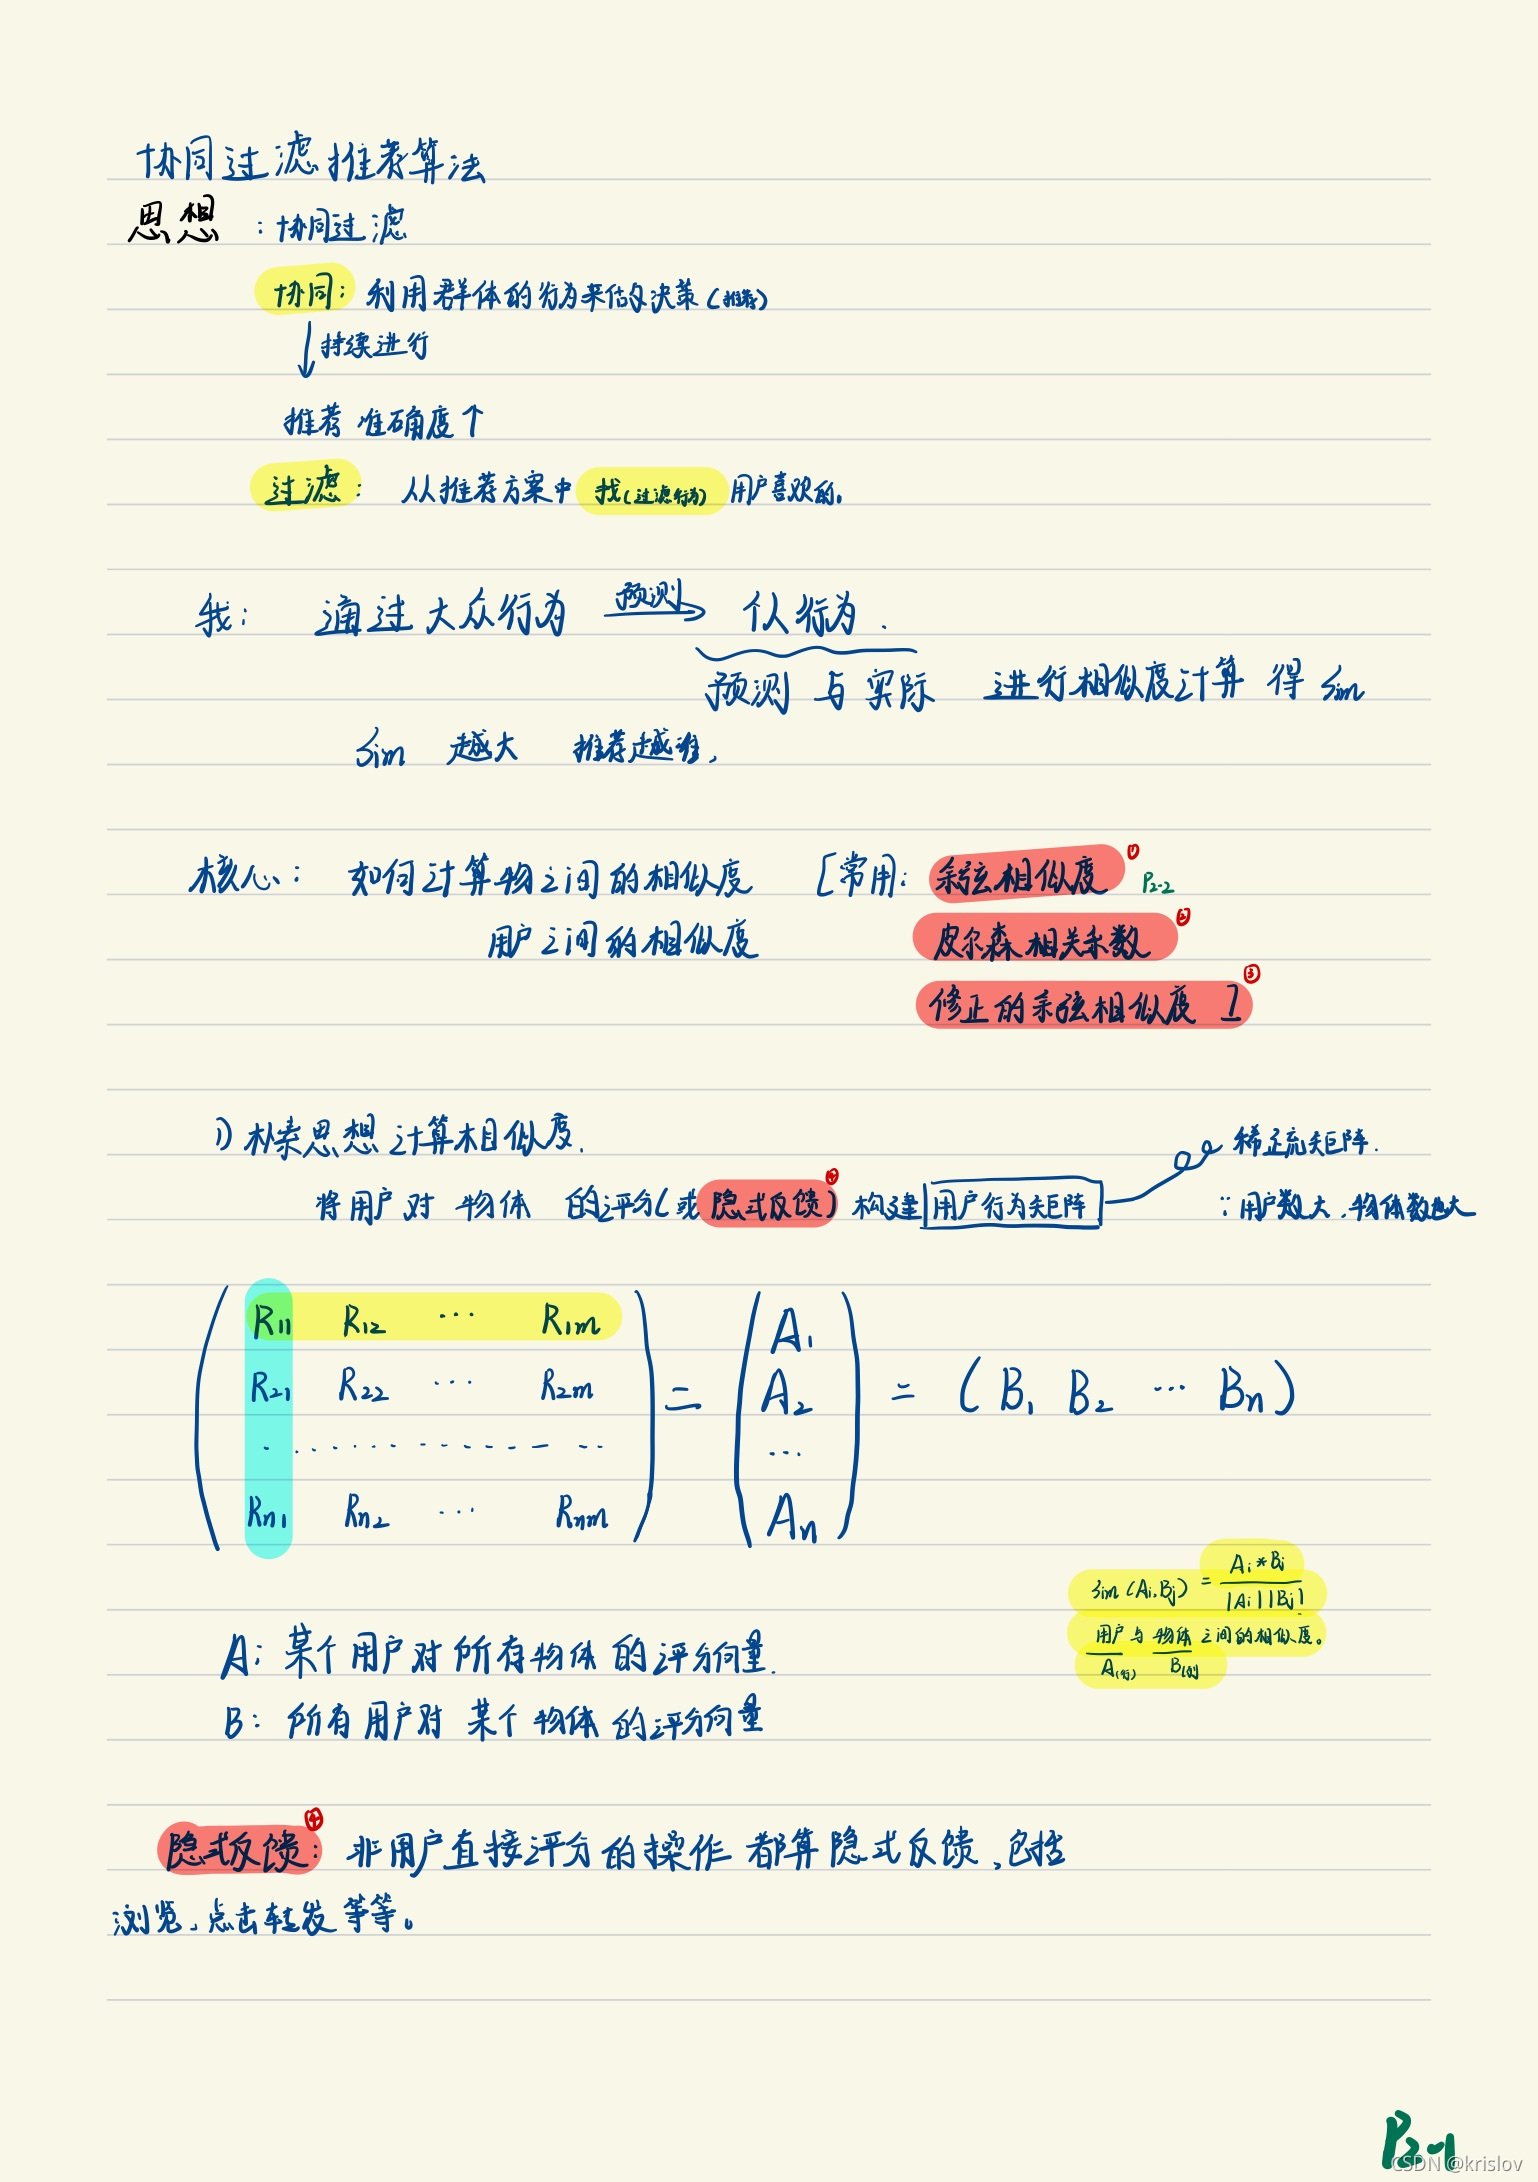 协同过滤推荐算法
思想 : 协同过滤
协同: 利用群体的行为来做决策(推荐)
↓持续进行
推荐 准确度↑
过滤: 从推荐方案中 找(过滤行为) 用户喜欢的。
我: 通过大众行为 预测→ 个人行为.
预测 与 实际 进行相似度计算 得 sim
sim 越大 推荐越准,
核心: 如何计算物之间的相似度 [常用: 余弦相似度 ① P2-2
用户之间的相似度 皮尔森相关系数 ②
修正的余弦相似度 ] ③
1) 朴素思想 计算相似度.
稀疏矩阵.
将用户对 物体 的评分(或隐式反馈) ④ 构建 用户行为矩阵 ∵用户数大.物体数也大
R11 R12 ... R1m
R21 R22 ... R2m
Rn1 Rn2 ... Rnm
= A1 A2 ... An = (B1 B2 ... Bn)
sim(Ai,Bj) = Ai*Bj / |Ai||Bj|
用户与 物体 之间的相似度。
A: 某个用户对所有物体的评分向量.
B: 所有用户对 某个物体的评分向量
隐式反馈: ④ 非用户直接评分的操作 都算隐式反馈、包括
浏览、点击转发等等。
P2-1
CSDN @krislov